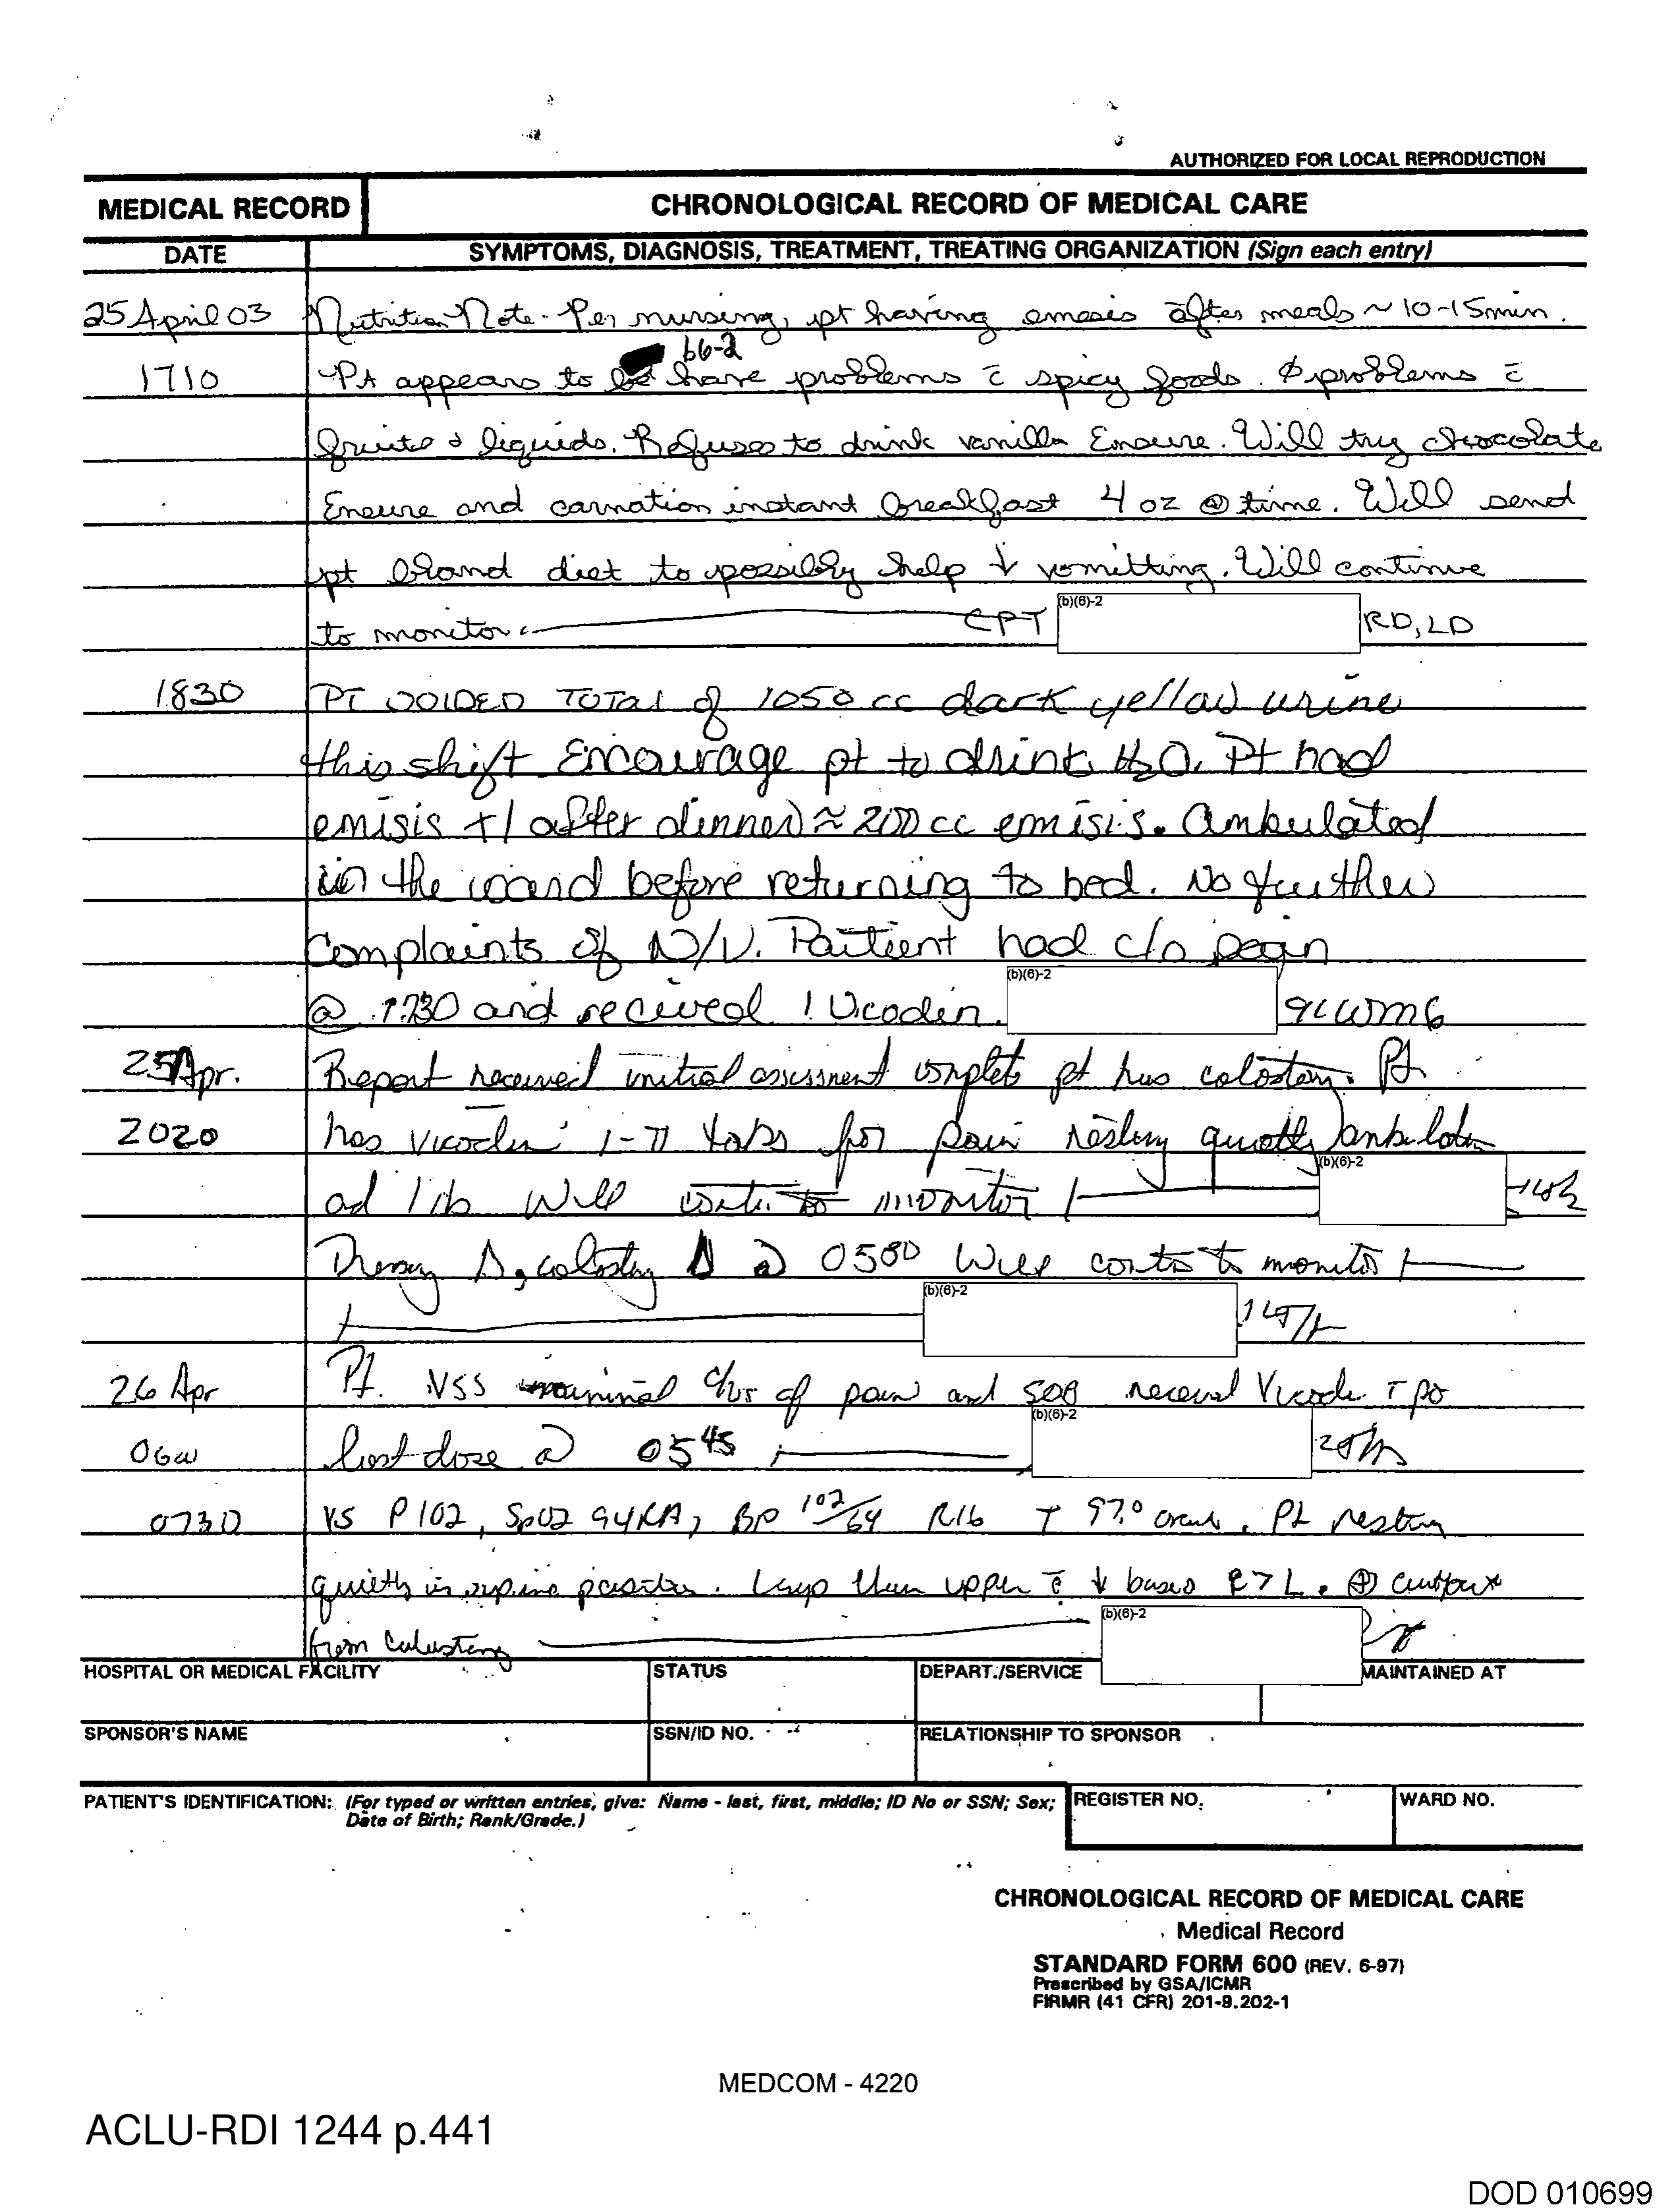 AUTHORIZED FOR LOCAL REPRODUCTION
MEDICAL RECORD
CHRONOLOGICAL RECORD OF MEDICAL CARE
DATE
SYMPTOMS, DIAGNOSIS, TREATMENT, TREATING ORGANIZATION (Sign each entry)
25 April 03 Nutrition Note - Per nursing, pt having emesis after meals ~ 10-15min.
b6-2
1710 Pt appears to have problems c̄ spicy foods. Φ problems c̄
fruits & liquids. Refuses to drink vanilla Ensure. Will try chocolate
Ensure and carnation instant breakfast 4 oz @ time. Will send
pt bland diet to possibly help ↓ vomitting. Will continue
to monitor. CPT (b)(6)-2 RD, LD
1830 PT VOIDED TOTAL of 1050 cc dark yellow urine
this shift Encourage pt to drink H2O. Pt had
emisis +1 after dinner ≈ 200 cc emisis. Ambulated
in the ward before returning to bed. No further
Complaints of N/V. Patient had c/o pain
@ 1730 and received 1 Vicodin. (b)(6)-2 91WM6
25 Apr. Report received initial assessment complete pt has colostomy. Pt
2020 has vicodin 1-II tabs for pain resting quietly ambulates
ad lib Will cont. to monitor (b)(6)-2
Δ, colostomy Δ @ 0500 Will cont to monitor
(b)(6)-2
26 Apr Pt. VSS minimal c/os of pain and SOB received Vicodin T po
0600 last dose @ 0545 (b)(6)-2
0730 VS P 102, SpO2 94RA, BP 102/64 R16 T 97.0 oral. Pt resting
quietly in supine position. Lungs clear upper c̄ ↓ bases R>L. ⊕ output
from colostomy (b)(6)-2
HOSPITAL OR MEDICAL FACILITY
STATUS
DEPART./SERVICE
MAINTAINED AT
SPONSOR'S NAME
SSN/ID NO.
RELATIONSHIP TO SPONSOR
PATIENT'S IDENTIFICATION: (For typed or written entries, give: Name - last, first, middle; ID No or SSN; Sex;
Date of Birth; Rank/Grade.)
REGISTER NO.
WARD NO.
CHRONOLOGICAL RECORD OF MEDICAL CARE
Medical Record
STANDARD FORM 600 (REV. 6-97)
Prescribed by GSA/ICMR
FIRMR (41 CFR) 201-9.202-1
MEDCOM - 4220
ACLU-RDI 1244 p.441
DOD 010699